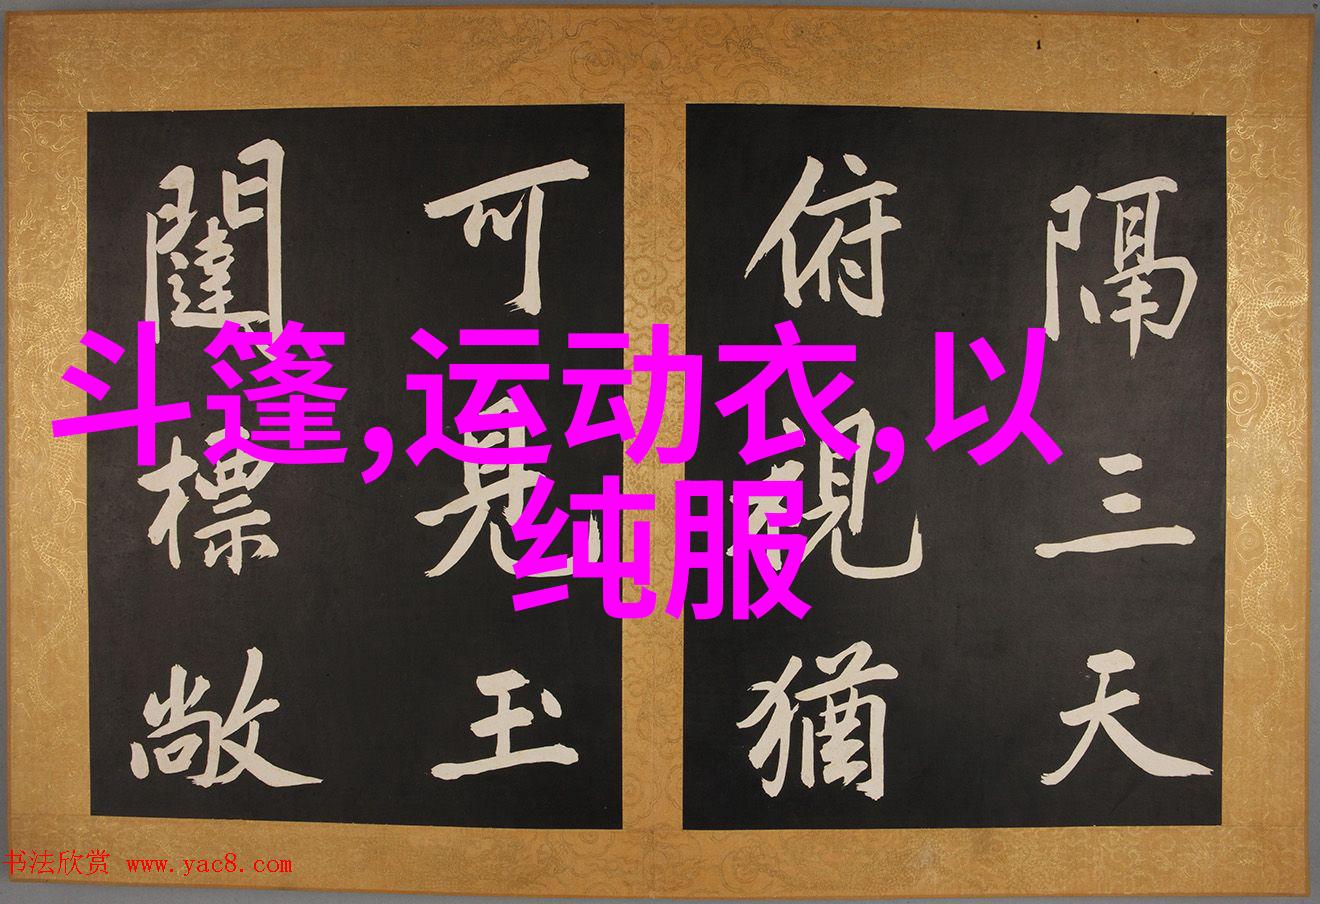 隔三天
俯視猶
可見玉
闥標敞
斗篷,运动衣,以
纯服
书法欣赏 www.yac8.com